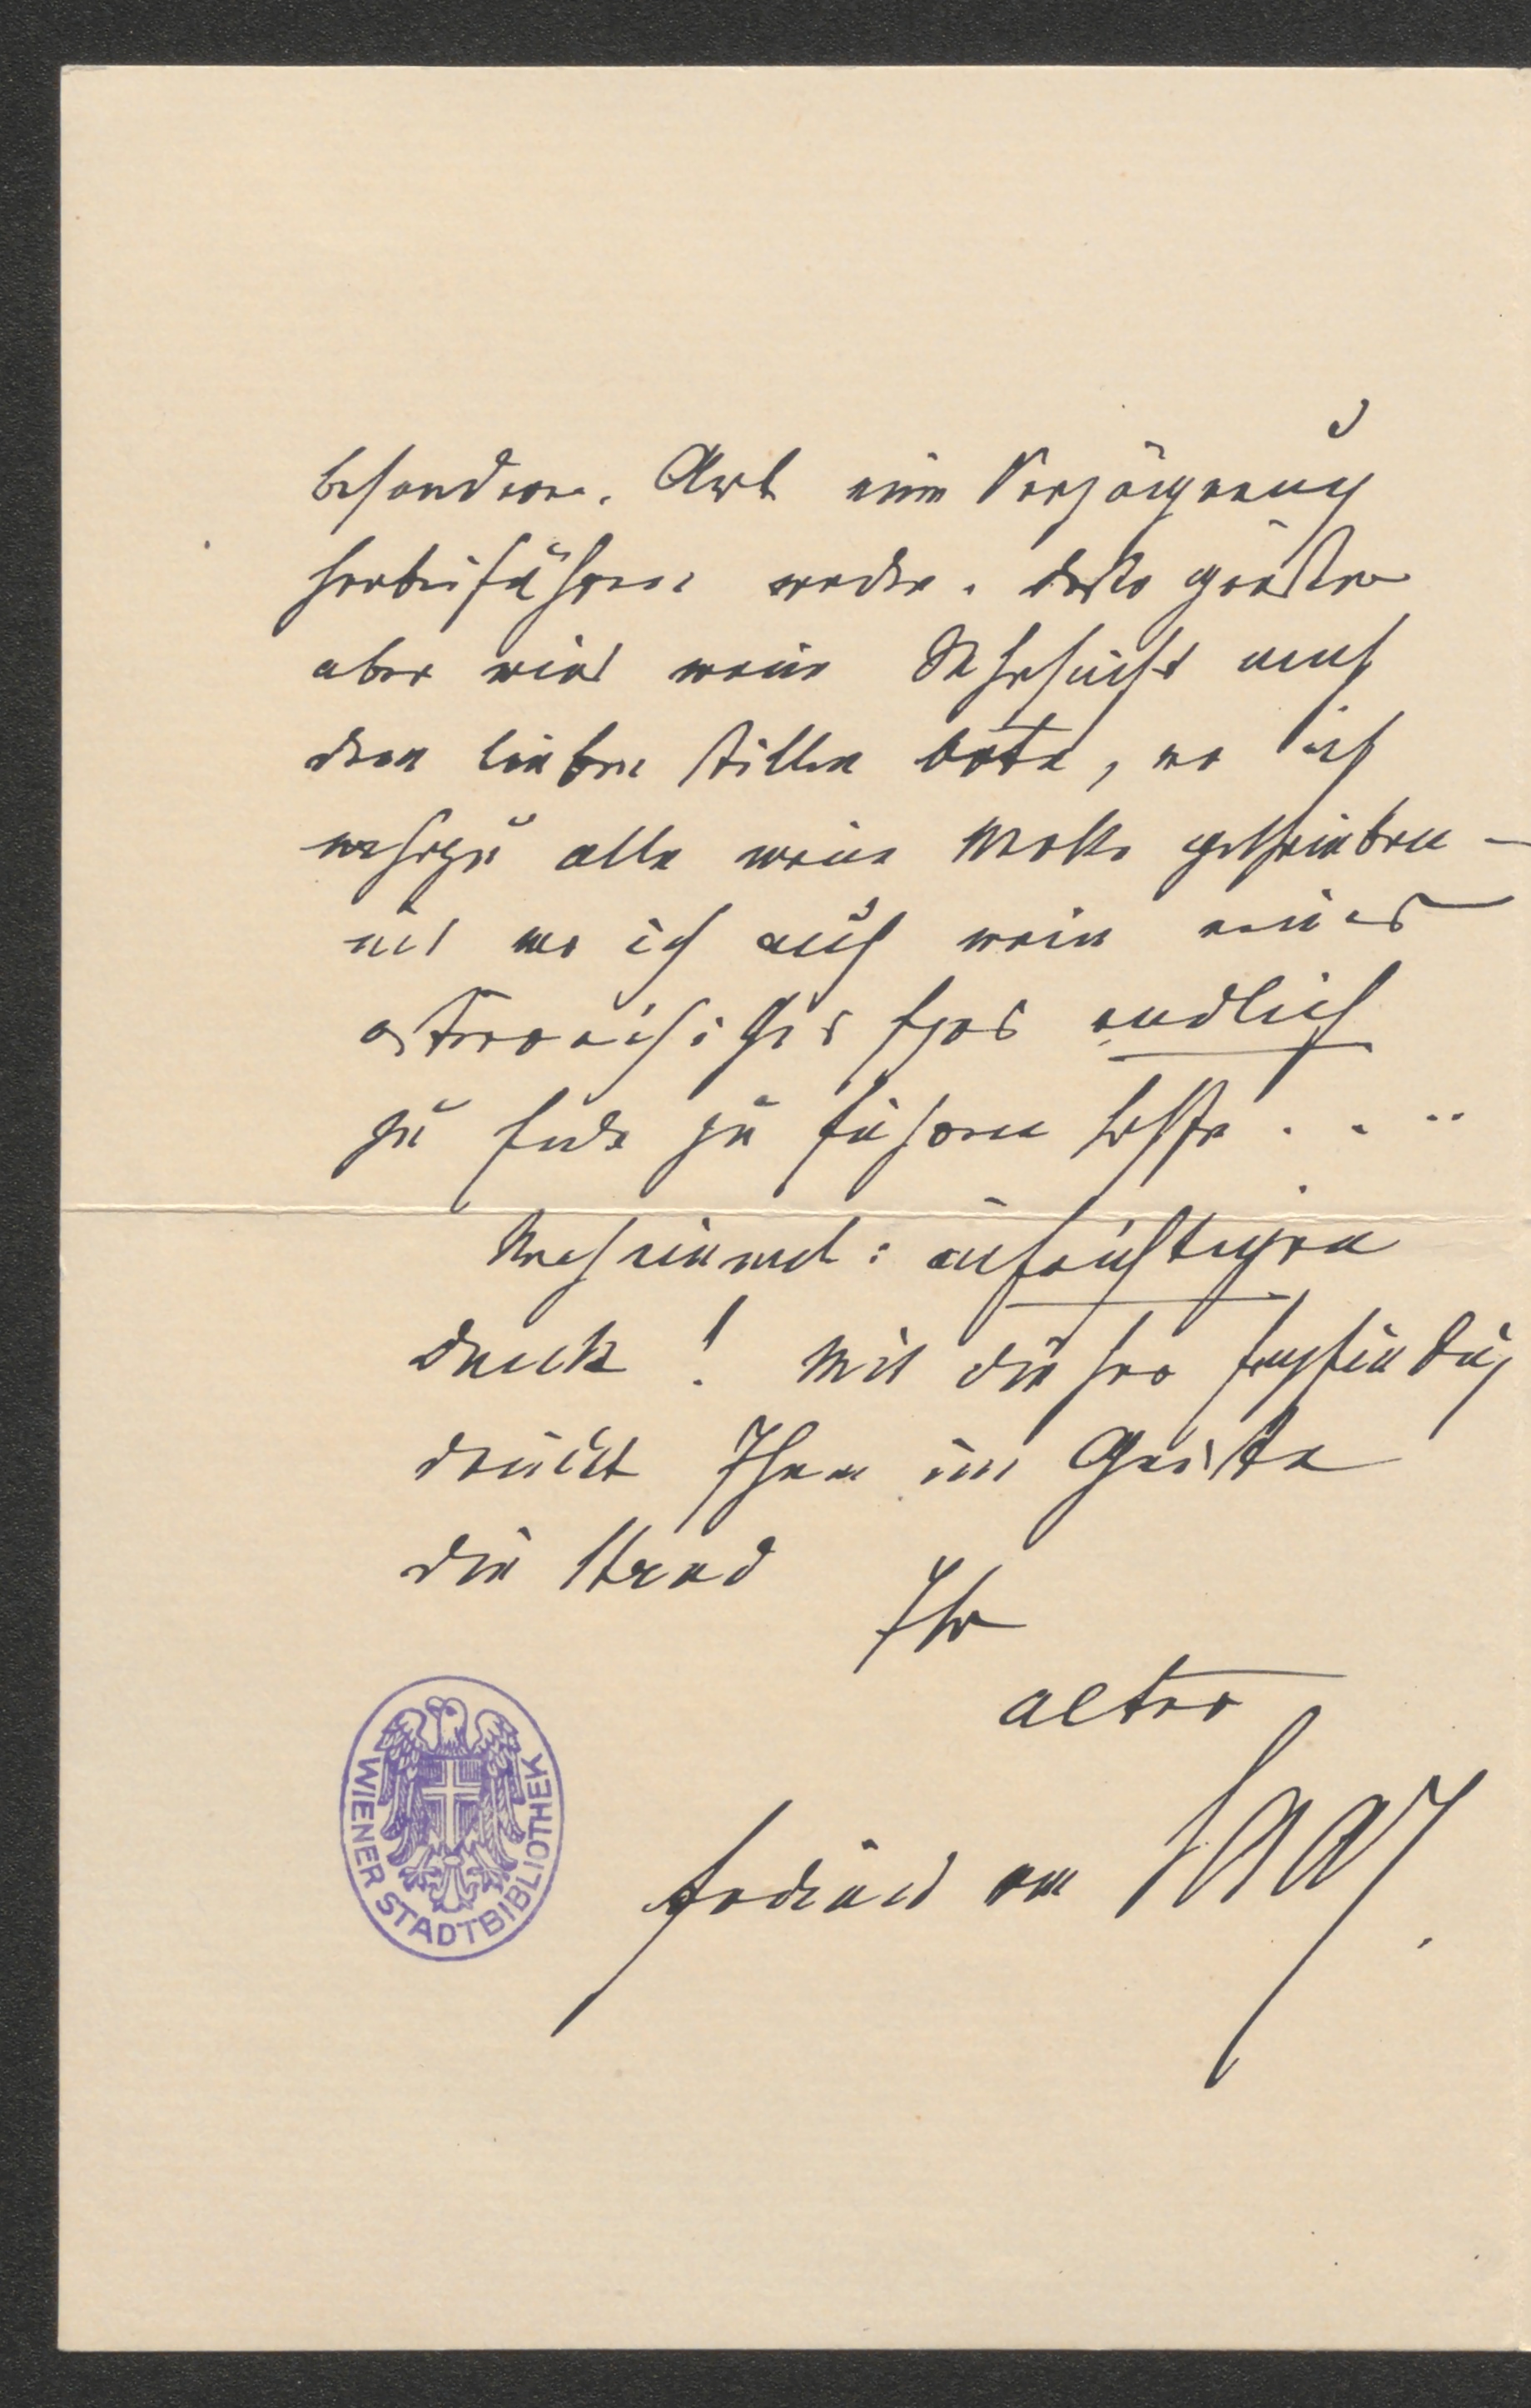 besonderer Art eine Verzögerung
herbeiführen werden. Desto größer
aber wird meine Sehnsucht nach
dem lieben stillen Orte, wo ich
nahezu alle meine Werke geschrieben –
und wo ich auch mein neues
österreichisches Epos endlich
zu Ende zu führen hoffe . . . .
Noch einmal: aufrichtigen
Dank! Mit dieser Empfindung
drückt Ihnen im Geiste
die Hand
Ihr
alter
Ferdinand von Saar.
WIENER STADTBIBLIOTHEK